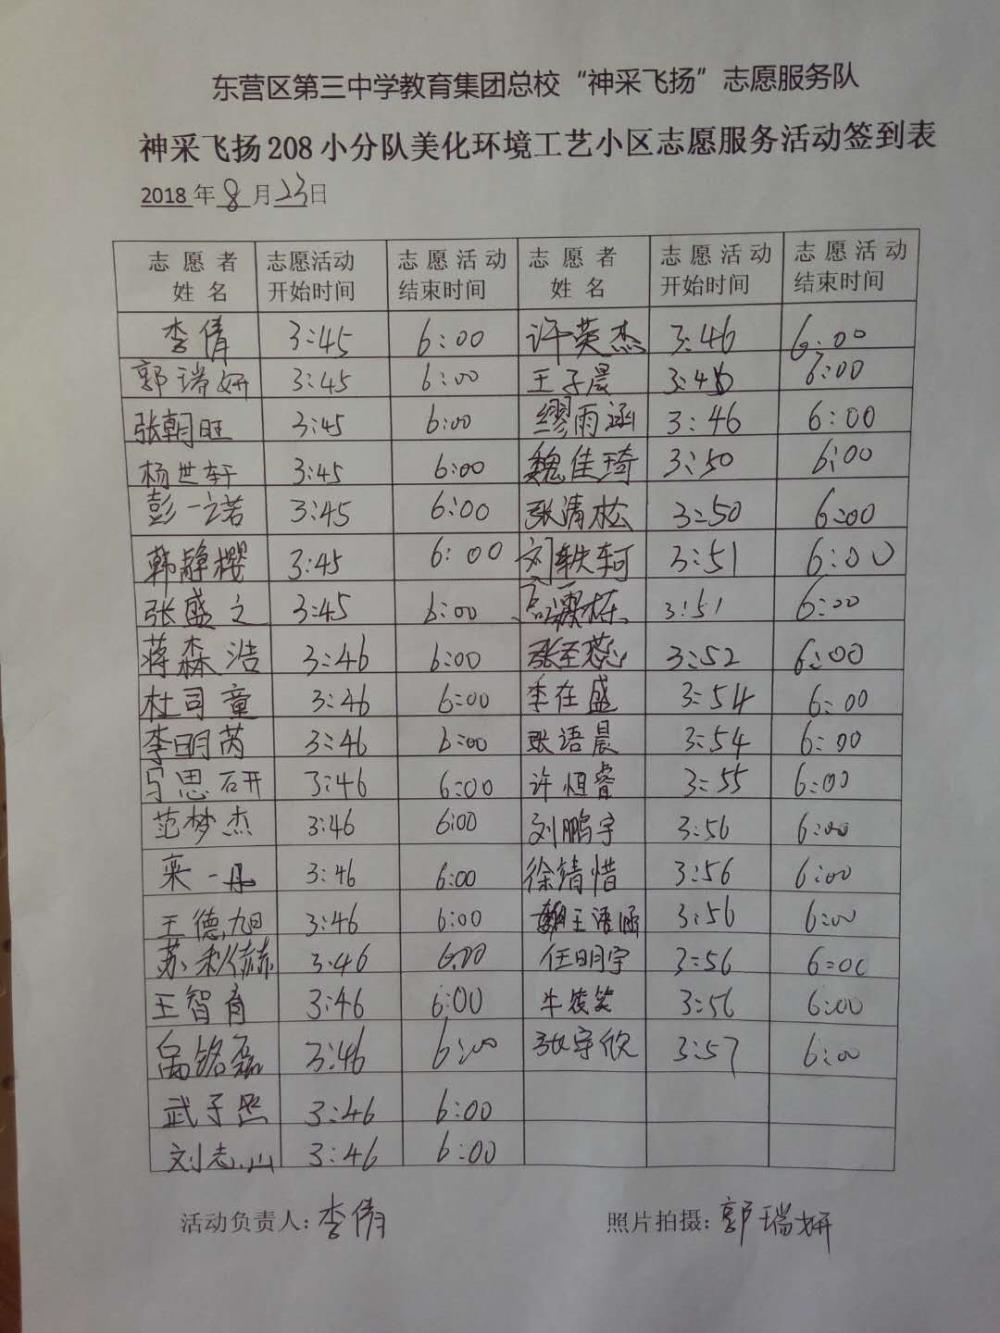 东营区第三中学教育集团总校“神采飞扬”志愿服务队
神采飞扬208小分队美化环境工艺小区志愿服务活动签到表
2018年8月23日
志愿者姓名 志愿活动开始时间 志愿活动结束时间 志愿者姓名 志愿活动开始时间 志愿活动结束时间
李倩 3:45 6:00 许英杰 3:46 6:00
郭瑞妍 3:45 6:00 王子晨 3:46 6:00
张朝旺 3:45 6:00 缪雨涵 3:46 6:00
杨世轩 3:45 6:00 魏佳琦 3:50 6:00
彭一诺 3:45 6:00 张清松 3:50 6:00
韩静樱 3:45 6:00 刘轶轲 3:51 6:00
张盛之 3:45 6:00 3:51 6:00
蒋森浩 3:46 6:00 张至蕊 3:52 6:00
杜司童 3:46 6:00 李在盛 3:54 6:00
李明芮 3:46 6:00 张语晨 3:54 6:00
思研 3:46 6:00 许恒睿 3:55 6:00
范梦杰 3:46 6:00 刘鹏宇 3:56 6:00
栾一丹 3:46 6:00 徐靖惜 3:56 6:00
王德旭 3:46 6:00 王语涵 3:56 6:00
苏 3:46 6:00 任明宇 3:56 6:00
王智育 3:46 6:00 牛筱笑 3:56 6:00
铭磊 3:46 6:00 张宇欣 3:57 6:00
武子煜 3:46 6:00
刘志山 3:46 6:00
活动负责人：李倩 照片拍摄：郭瑞妍